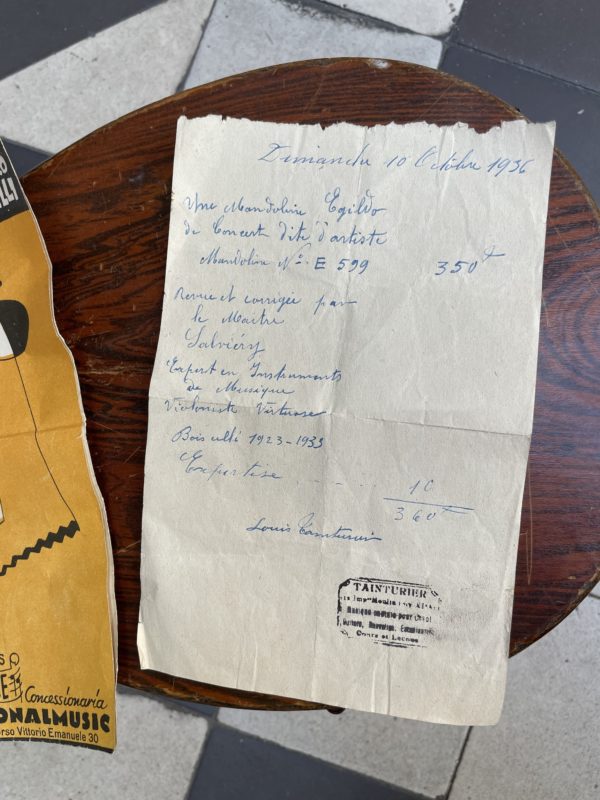 Dimanche 10 Octobre 1936
Une Mandoline Egildo
de Concert dite d'artiste
Mandoline No. E 599 350f
Revue et corrigée par
le Maitre
Salviéry
Expert en Instruments
de Musique
Violoniste Virtuose
Bois culté 1923-1933
Expertise ..... 10
360f
Louis
TAINTURIER
Moulin
Musique pour
Cours et Leçons
Concessionaria
ONALMUSIC
orso Vittorio Emanuele 30